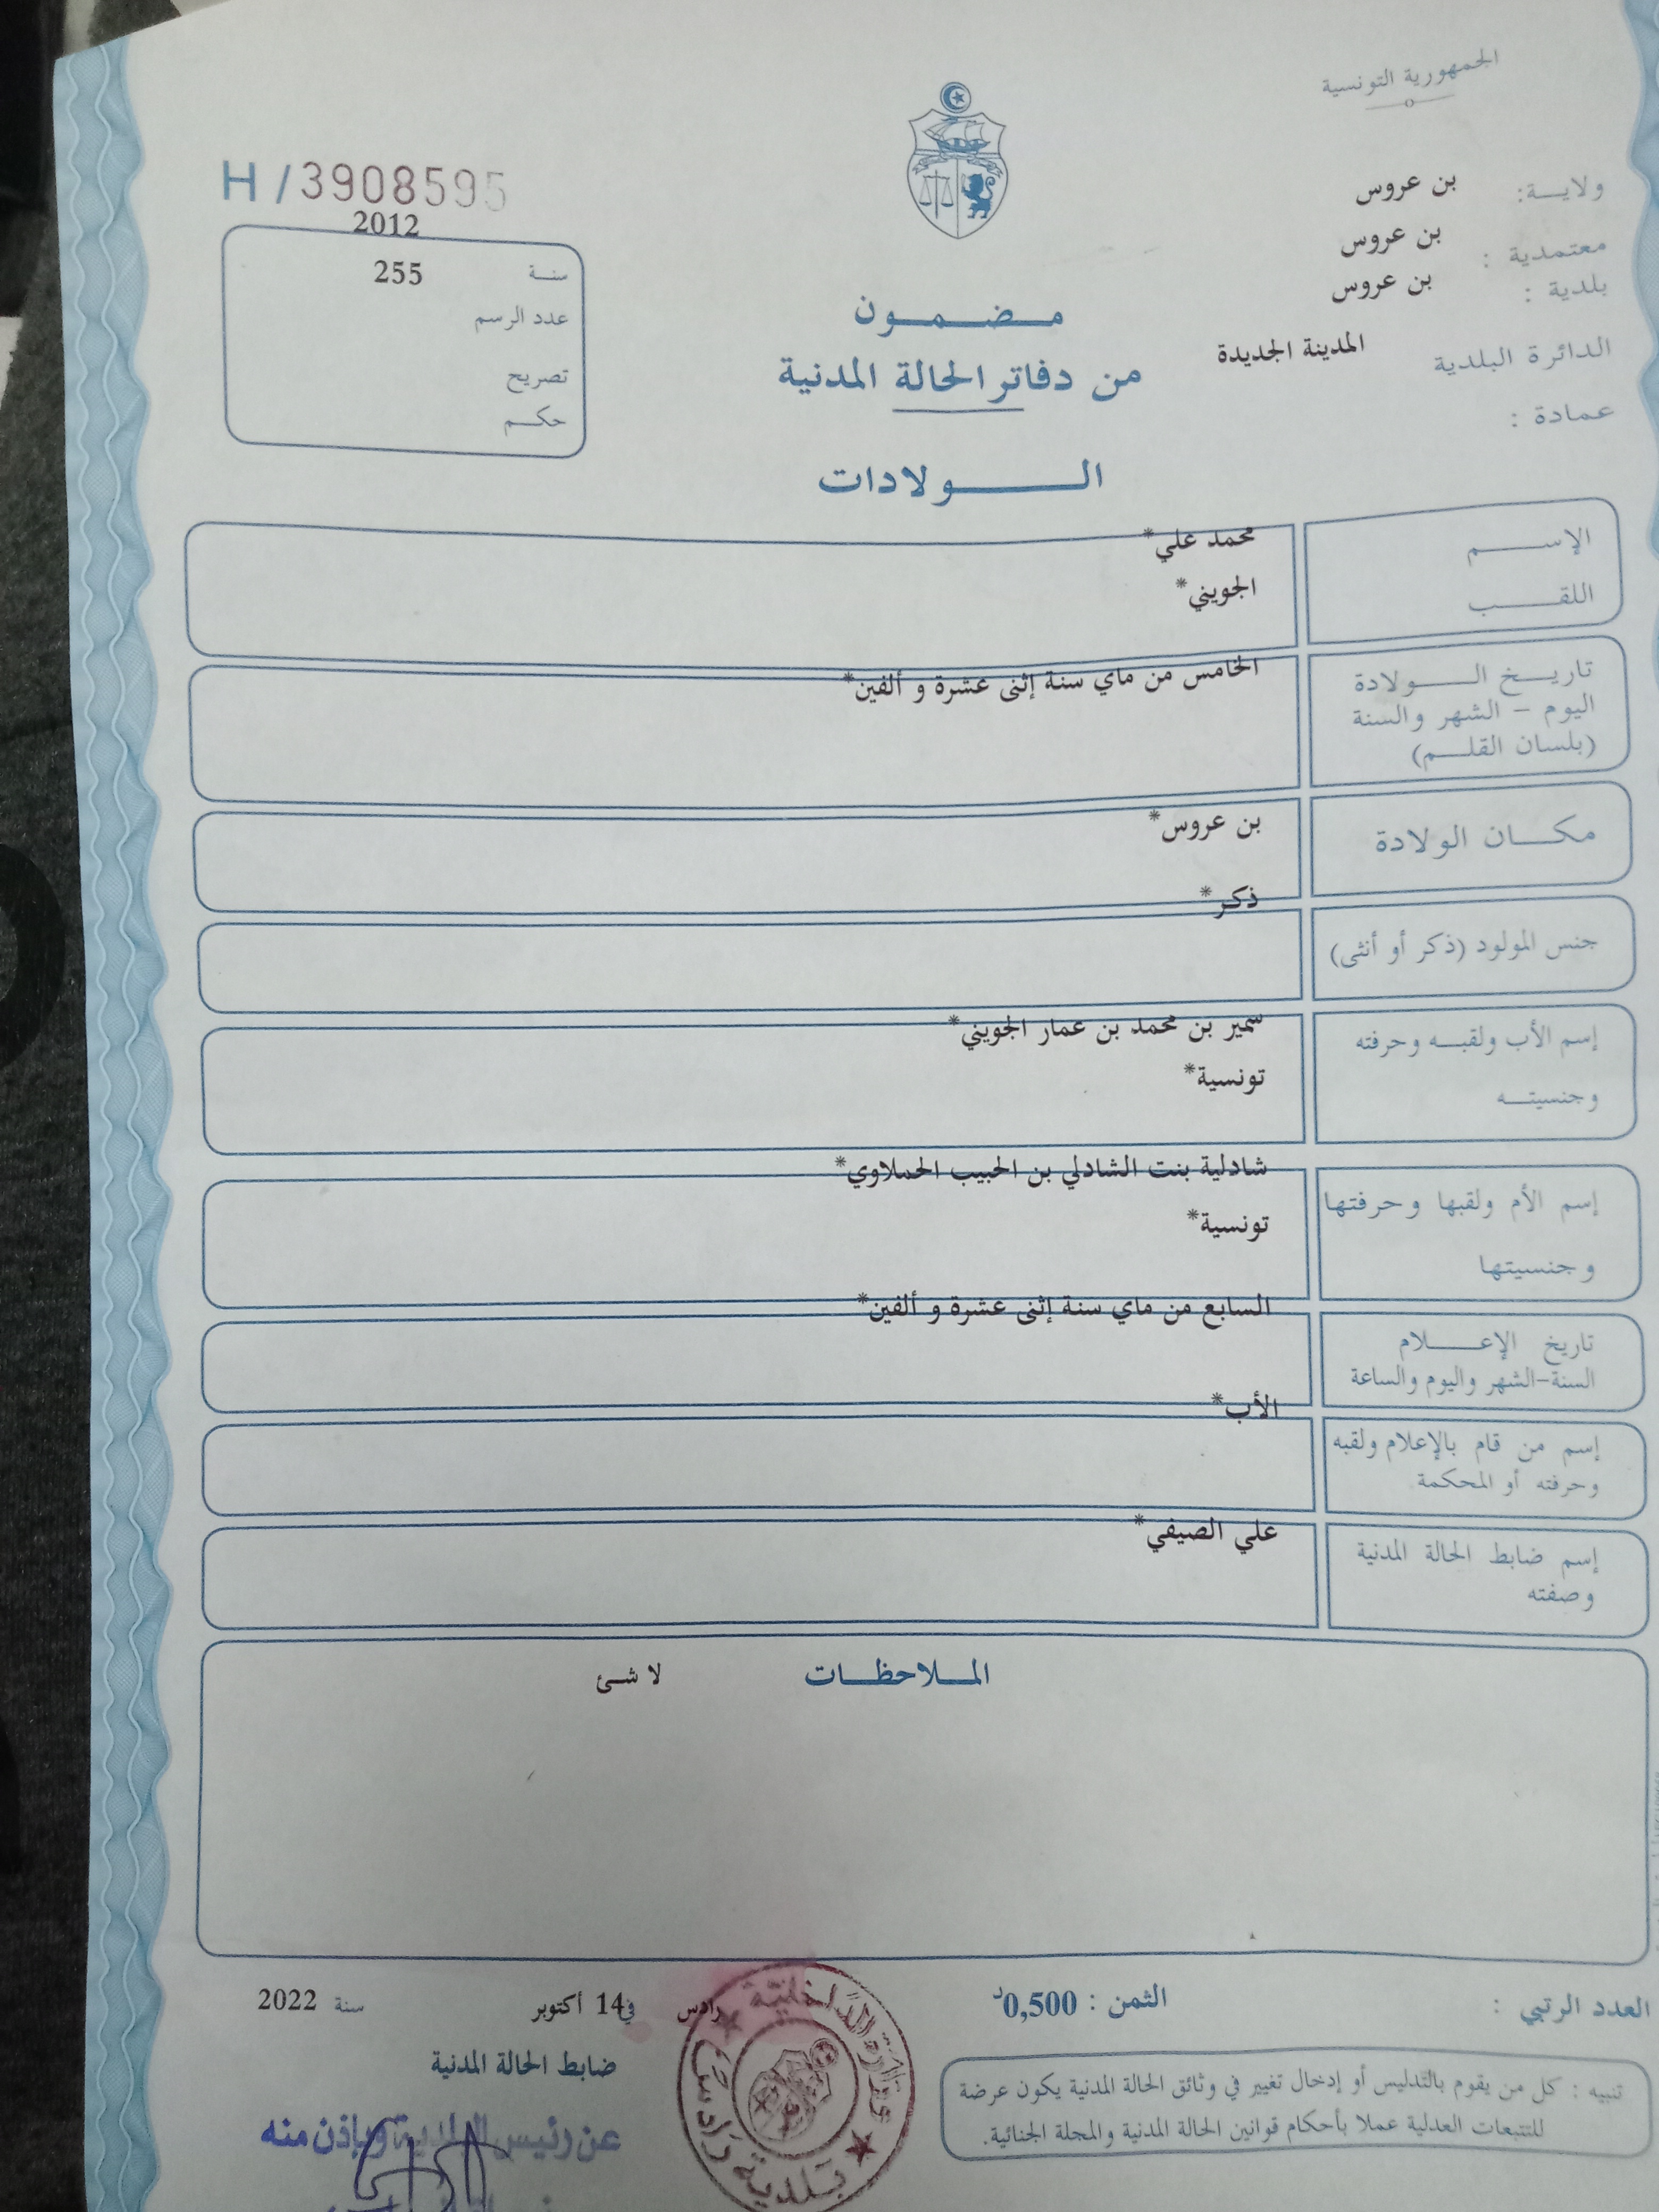 الجمهورية التونسية
ولايـــة: بن عروس
معتمدية : بن عروس
بلدية : بن عروس
الدائرة البلدية المدينة الجديدة
عمادة :
H/3908595
2012
سنـة 255
عدد الرسم
تصريح
حكـــم
مـــضـــمـــون
من دفاتر الحالة المدنية
الـــــولادات
الإســـــم محمد علي*
اللقـــــب الجويني*
تاريـــخ الـــــولادة الخامس من ماي سنة إثنى عشرة و ألفين*
اليوم – الشهر والسنة
(بلسان القلـــم)
مكـــان الولادة بن عروس*
ذكر*
جنس المولود (ذكر أو أنثى)
إسم الأب ولقبـــه وحرفته سمير بن محمد بن عمار الجويني*
وجنسيتـــه تونسية*
شادلية بنت الشادلي بن الحبيب الحملاوي*
إسم الأم ولقبها وحرفتها
تونسية*
وجنسيتها
السابع من ماي سنة إثنى عشرة و ألفين*
تاريخ الإعـــــلام
السنة-الشهر واليوم والساعة
الأب*
إسم من قام بالإعلام ولقبه
وحرفته أو المحكمة
علي الصيفي*
إسم ضابط الحالة المدنية
وصفته
المـــلاحظـــات لا شئ
العدد الرتبي :
الثمن : 0,500د
رادس في14 أكتوبر سنة 2022
ضابط الحالة المدنية
عن رئيس البلدية وبإذن منه
وزارة الداخلية
بلدية رادس
تنبيه : كل من يقوم بالتدليس أو إدخال تغيير في وثائق الحالة المدنية يكون عرضة
للتتبعات العدلية عملا بأحكام قوانين الحالة المدنية والمجلة الجنائية.